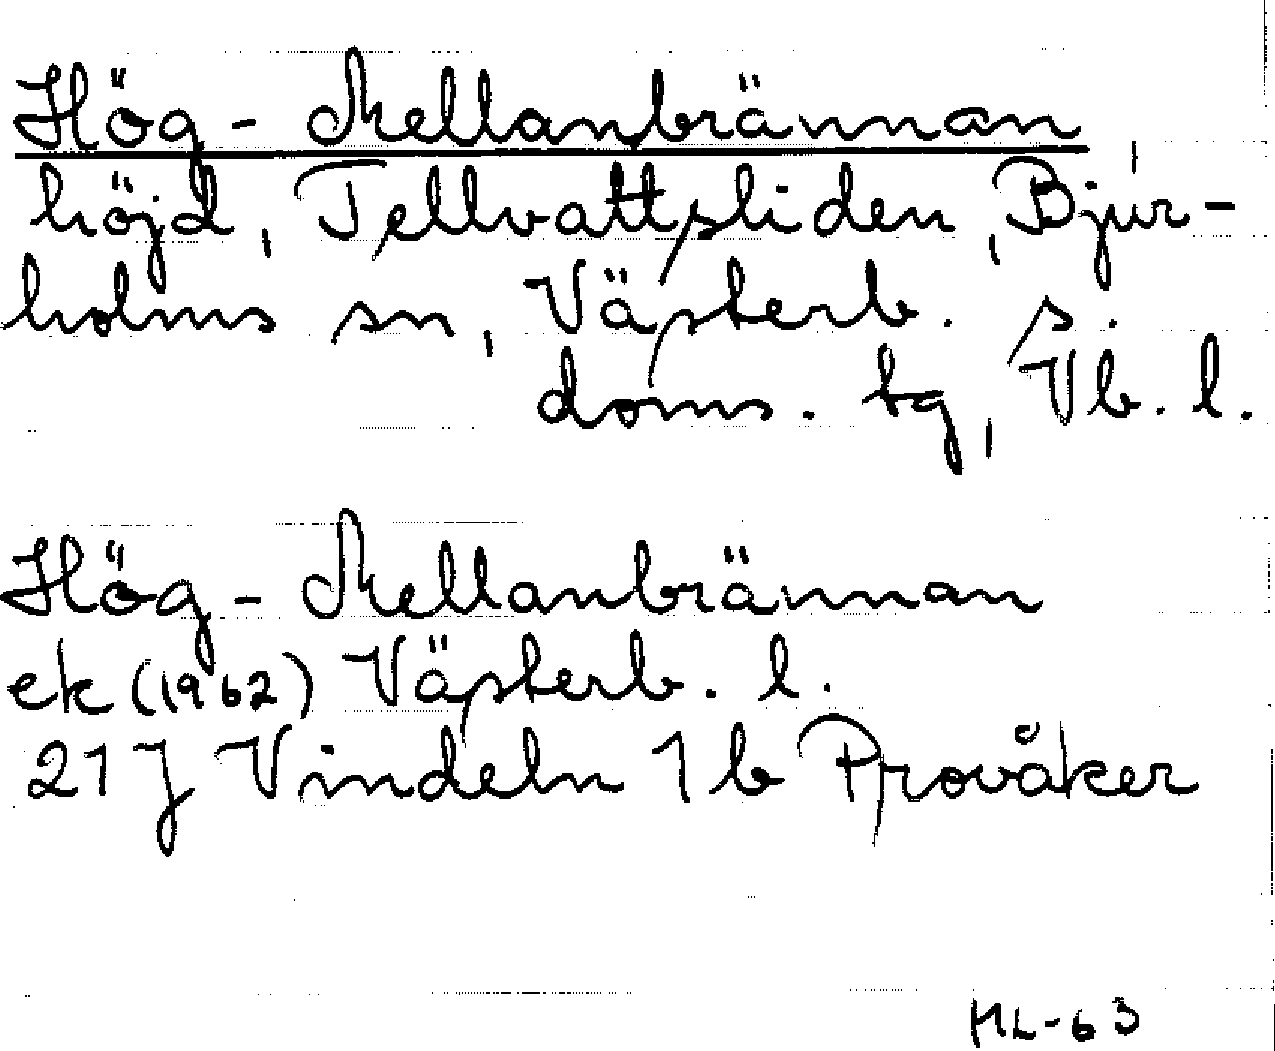 Hög-Mellanbrännan,
höjd, Tellvattsliden, Bjur-
holms sn, Västerb. s.
doms. tg, Vb. l.
Hög-Mellanbrännan
ek (1962) Västerb. l.
21 J Vindeln 1 b Provåker
ML-63